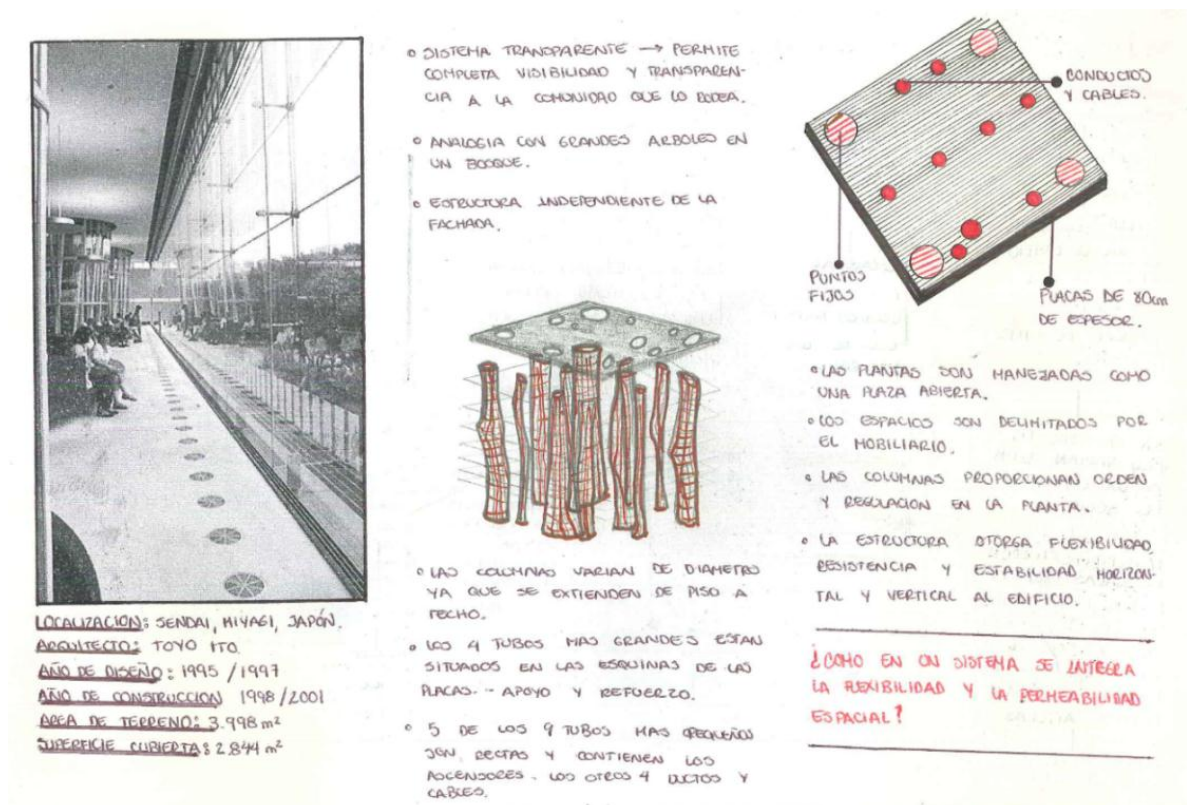 LOCALIZACION: SENDAI, MIYAGI, JAPÓN.
ARQUITECTO: TOYO ITO
AÑO DE DISEÑO: 1995 / 1997
AÑO DE CONSTRUCCION 1998/2001
AREA DE TERRENO: 3.998 m²
SUPERFICIE CUBIERTA: 2.844 m²
o SISTEMA TRANSPARENTE → PERMITE
COMPLETA VISIBILIDAD Y TRANSPAREN-
CIA A LA COMUNIDAD QUE LO RODEA.
o ANALOGIA CON GRANDES ARBOLES EN
UN BOSQUE.
o ESTRUCTURA INDEPENDIENTE DE LA
FACHADA.
o LAS COLUMNAS VARIAN DE DIAMETRO
YA QUE SE EXTIENDEN DE PISO A
TECHO.
o LOS 4 TUBOS MAS GRANDES ESTAN
SITUADOS EN LAS ESQUINAS DE LAS
PLACAS. - APOYO Y REFUERZO.
o 5 DE LOS 9 TUBOS MAS PEQUEÑOS
SON RECTAS Y CONTIENEN LOS
ASCENSORES. LOS OTROS 4 DUCTOS Y
CABLES.
CONDUCTOS
Y CABLES.
PUNTOS
FIJOS
PLACAS DE 80cm
DE ESPESOR.
o LAS PLANTAS SON MANEJADAS COMO
UNA PLAZA ABIERTA.
o LOS ESPACIOS SON DELIMITADOS POR
EL MOBILIARIO.
o LAS COLUMNAS PROPORCIONAN ORDEN
Y REGULACION EN LA PLANTA.
o LA ESTRUCTURA OTORGA FLEXIBILIDAD,
RESISTENCIA Y ESTABILIDAD HORIZON-
TAL Y VERTICAL AL EDIFICIO.
¿COMO EN UN SISTEMA SE INTEGRA
LA FLEXIBILIDAD Y LA PERMEABILIDAD
ESPACIAL?